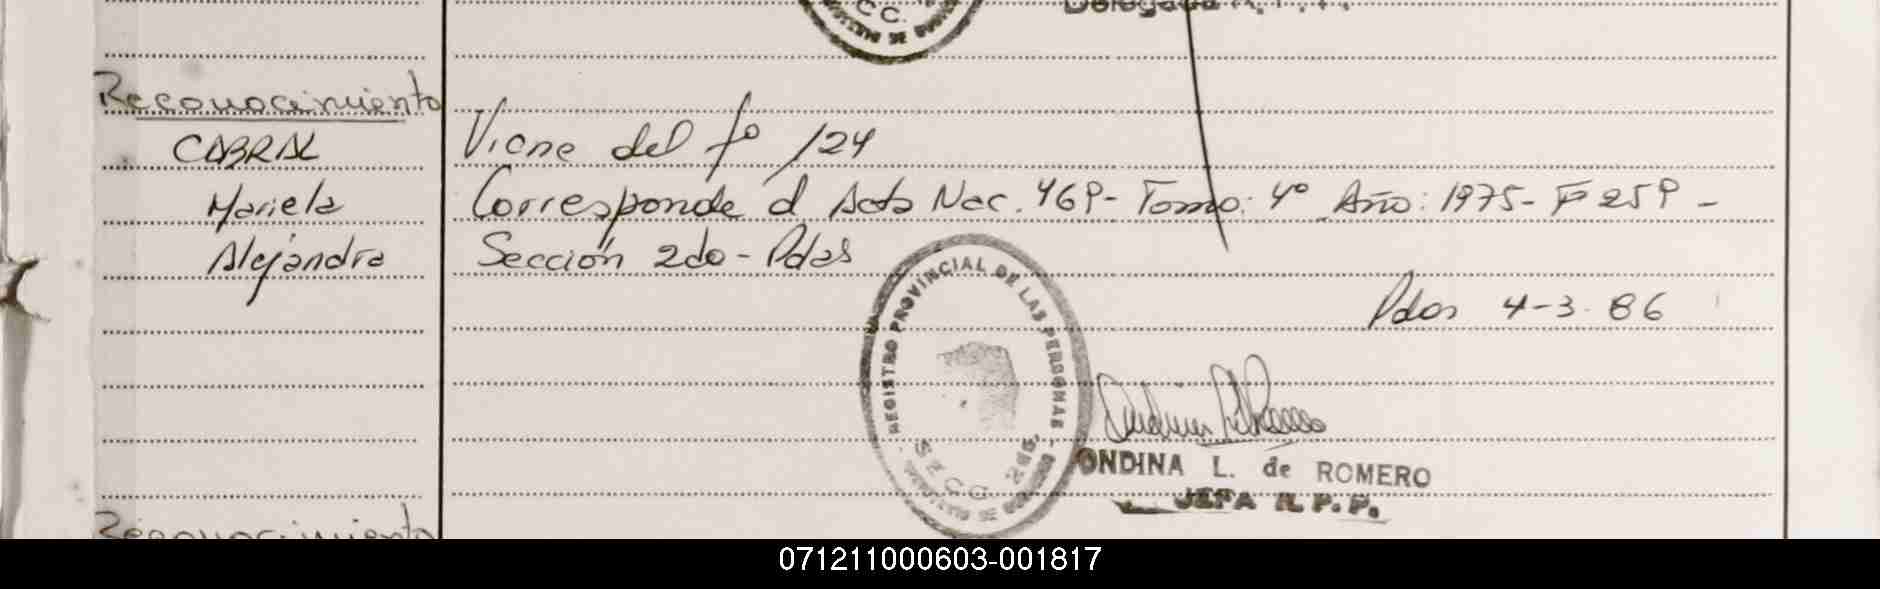 Delegada R.P.P.
Reconocimiento
CABRAL
Mariela
Alejandra
Viene del fº 124
Corresponde al Acta Nac. 469- Tomo: 4º Año: 1975- Fº 259-
Sección 2da- Pdas
Pdas 4-3-86
REGISTRO PROVINCIAL DE LAS PERSONAS
SECC. 2da.
ONDINA L. de ROMERO
JEFA R.P.P.
Reconocimiento
071211000603-001817